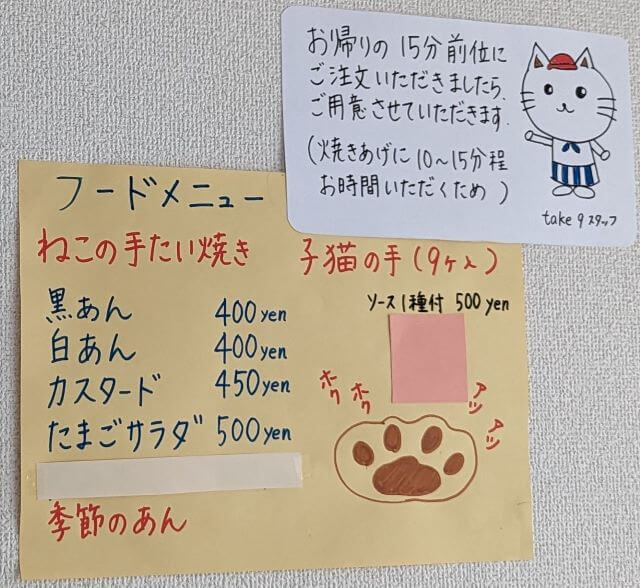 お帰りの15分前位に
ご注文いただきましたら、
ご用意させていただきます。
(焼きあげに10〜15分程
お時間いただくため)
take 9 スタッフ
フードメニュー
ねこの手たい焼き
黒あん 400yen
白あん 400yen
カスタード 450yen
たまごサラダ 500yen
季節のあん
子猫の手(9ヶ入)
ソース1種付 500yen
ホク
ホク
アツ
アツ